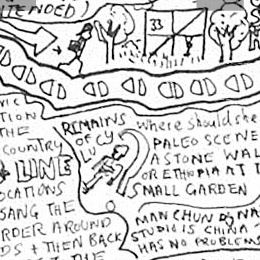 TENDED)
33
VIC
TION
THE
COUNTRY
LINE
OCATIONS
SANG THE
RDER AROUND
DS + THEN BACK
THE
REMAINS
OF CY
LU
Where should she
PALEO SCENE
A STONE WAL
OR ETHOPIA AT T
SMALL GARDEN
MAN CHUN DYNA
STUDIO IS CHINA
HAS NO PROBLEMS